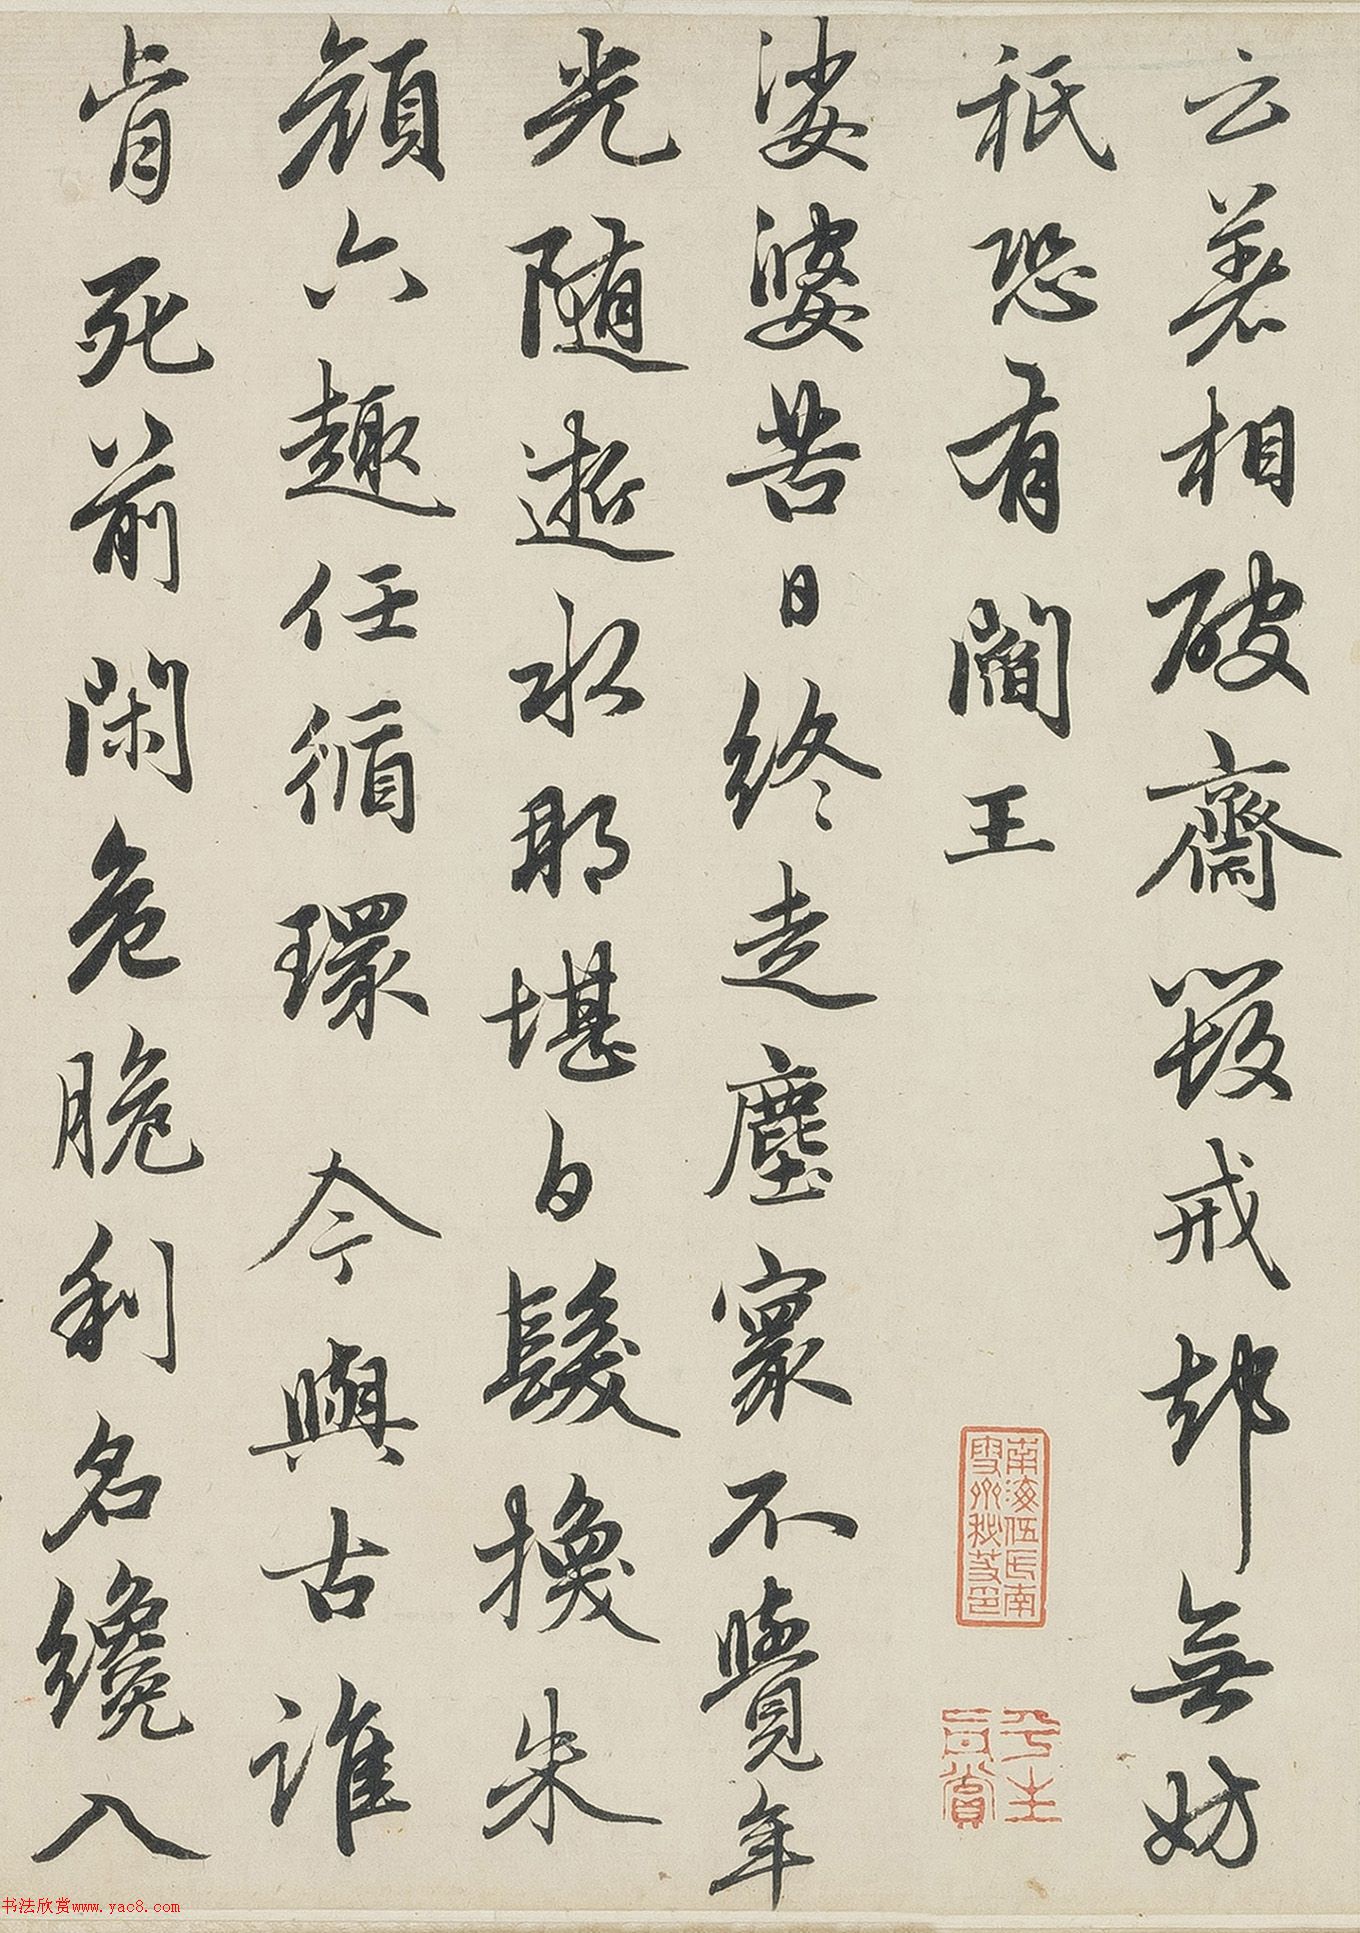 云著相破齋毀戒却無妨
祇恐有閻王
娑婆苦日終走塵寰不覺年
光隨逝水那堪白髮換朱
顏六趣任循環今與古誰
肯死前閑危脆利名纔入
南海伍氏南
雪州秘笈印
平生
真賞
书法欣赏www.yac8.com